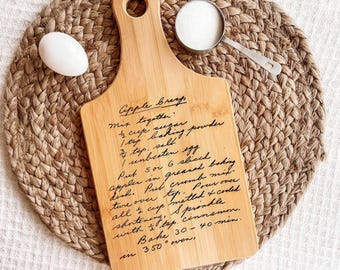 Apple Crisp
Mix together:
¾ cup sugar
1 tsp baking powder
¾ tsp. salt
1 unbeaten egg
Put 5 or 6 sliced
apples in greased baking
dish. Put crumb mix-
ture over top. Pour over
all ⅓ cup melted & cooled
shortening. Sprinkle
with ½ tsp cinnamon
Bake 30 - 40 min.
in 350° oven.